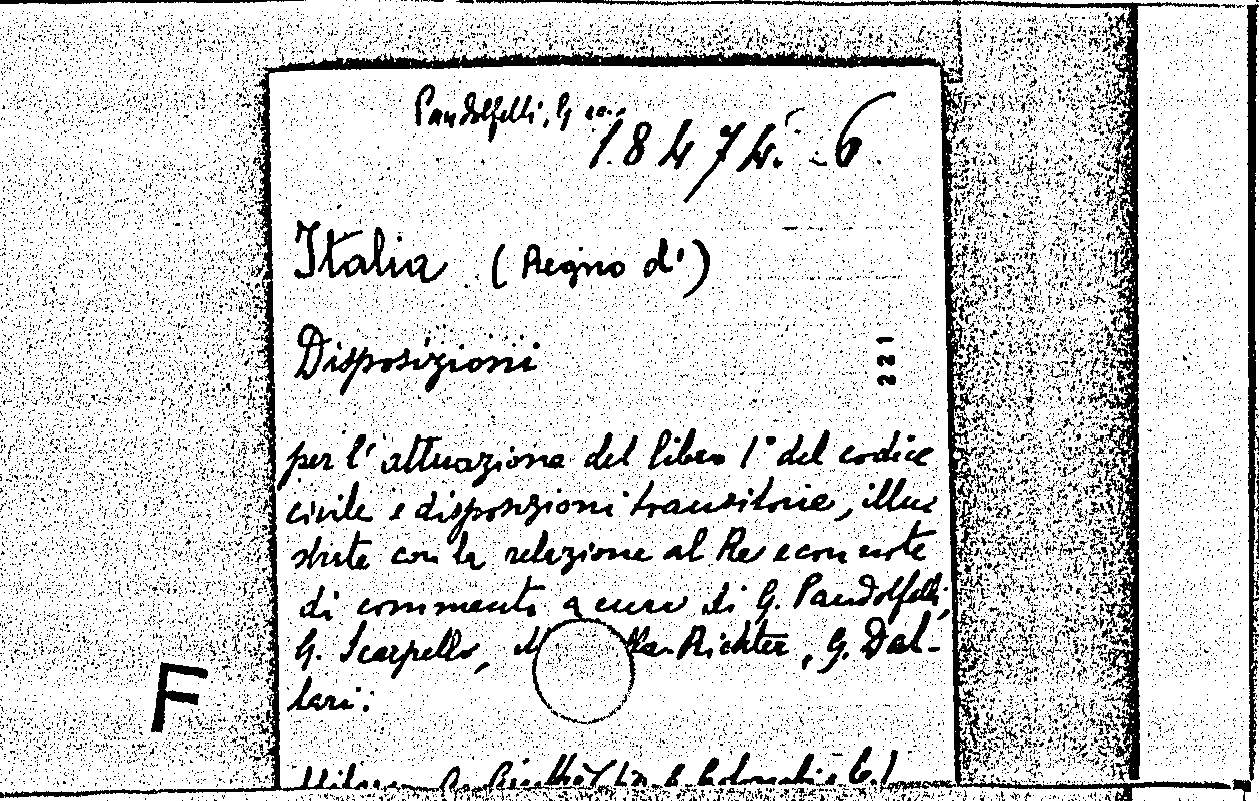 Pandolfelli, G ecc.
18474. - 6
Italia (Regno d')
Disposizioni
221
per l'attuazione del libro 1° del codice
civile e disposizioni transitorie, illu
strate con la relazione al Re e con note
di commento a cura di G. Pandolfelli,
G. Scarpello, Richter, G. Dal-
lari:
F
Milano